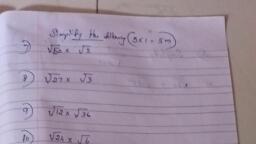 Simplify the following (5x1=5m)
7) √52 x √3
8) √27 x √3
9) √12 x √36
10) √24 x √6